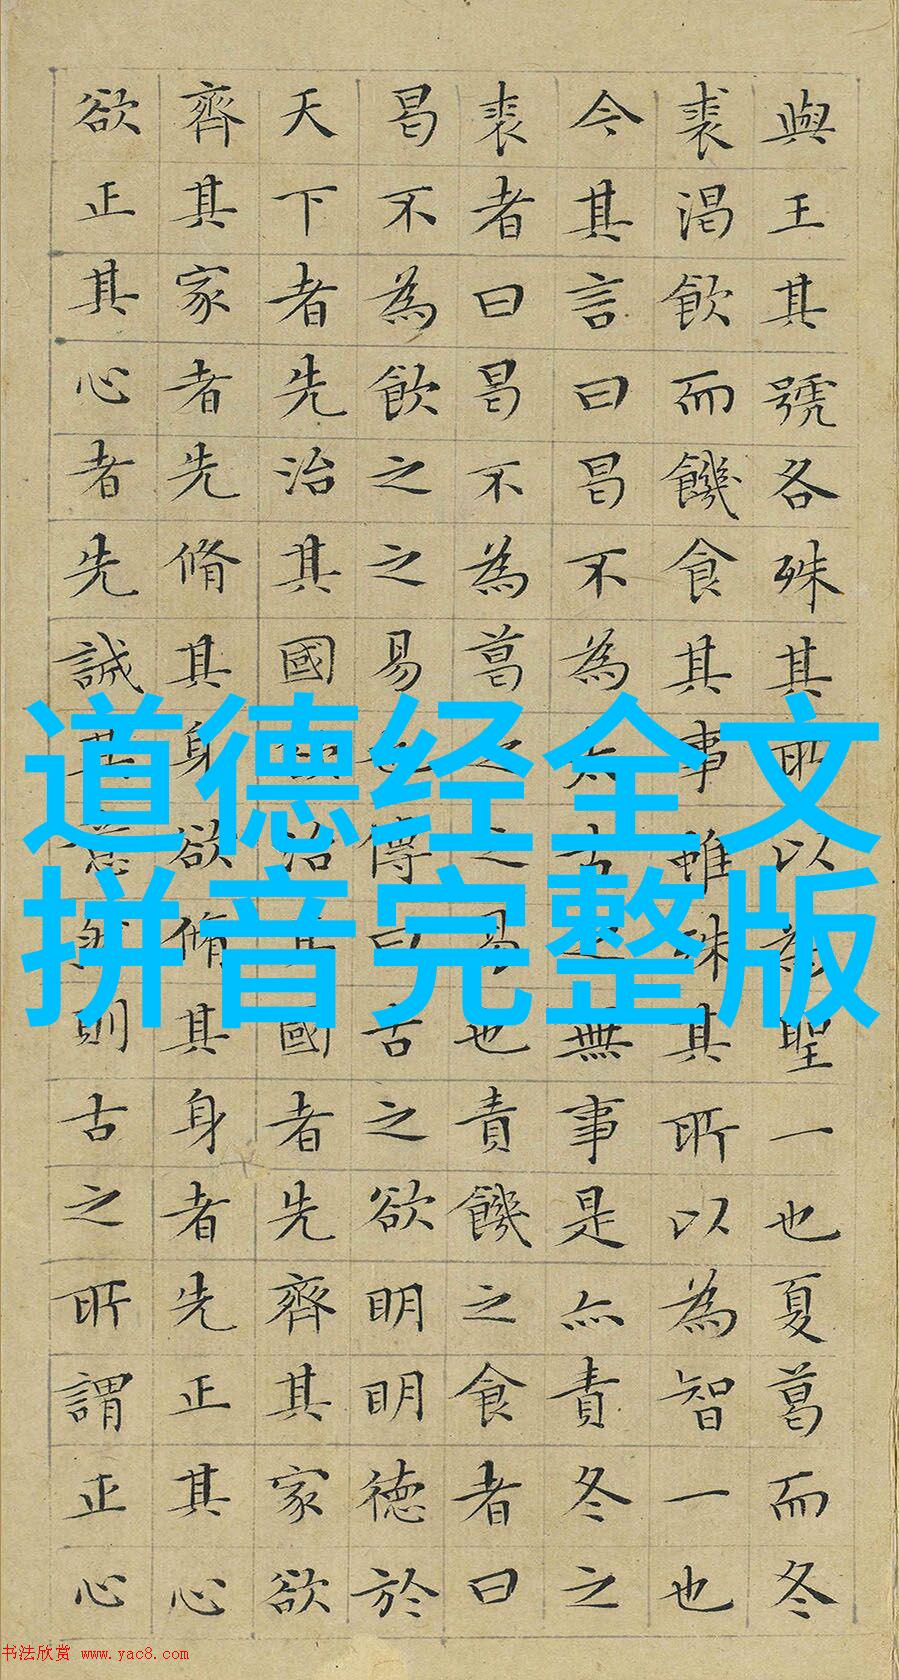 與王其號各殊其所以為聖一也夏葛而冬
裘渴飲而饑食其事雖殊其所以為智一也
今其言曰曷不為太古之無事是亦責冬之
裘者曰曷不為葛之之易也責饑之食者曰
曷不為飲之之易也傳曰古之欲明明德於
天下者先治其國欲治其國者先齊其家欲
齊其家者先脩其身欲脩其身者先正其心
欲正其心者先誠其意然則古之所謂正心
道德经全文
拼音完整版
书法欣赏 www.yac8.com